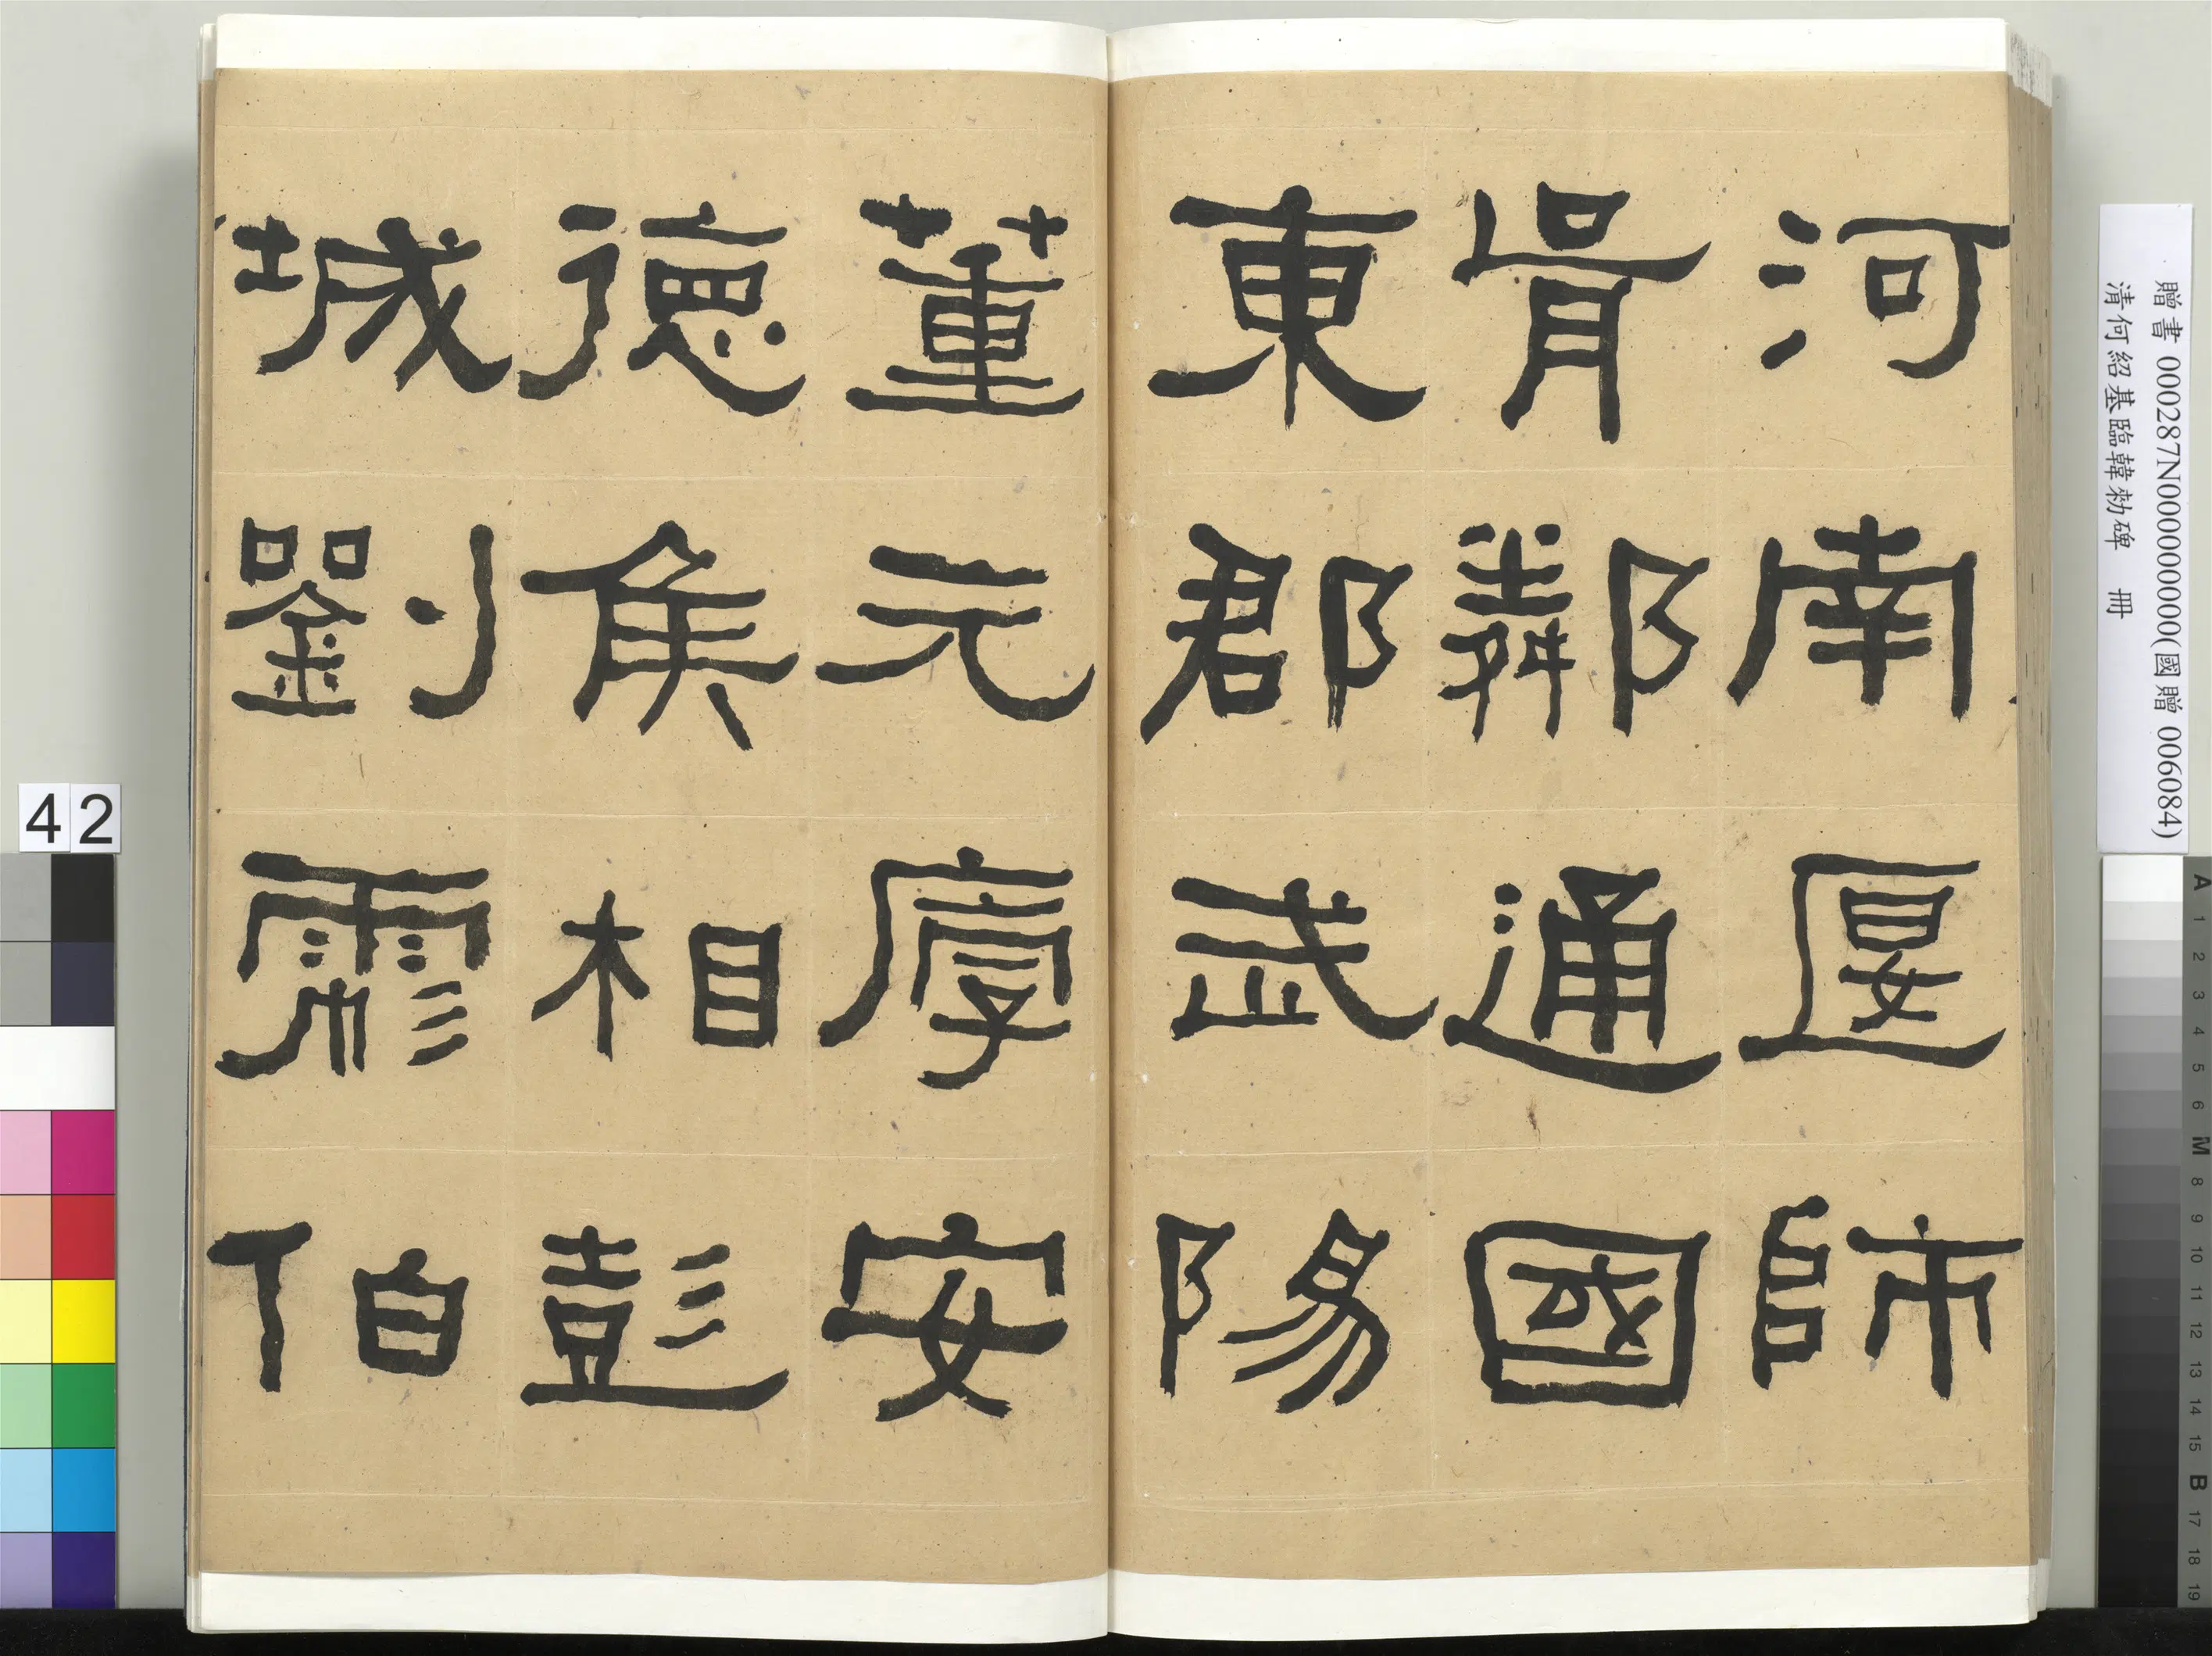 河南匽師
胥鄰通國
東郡武陽
董元厚安
德侯相彭
城劉彪伯
贈書 000287N000000000(國贈 006084)
清何紹基臨韓勑碑 冊
42
A 1 2 3 4 5 6 M 8 9 10 11 12 13 14 15 B 17 18 19